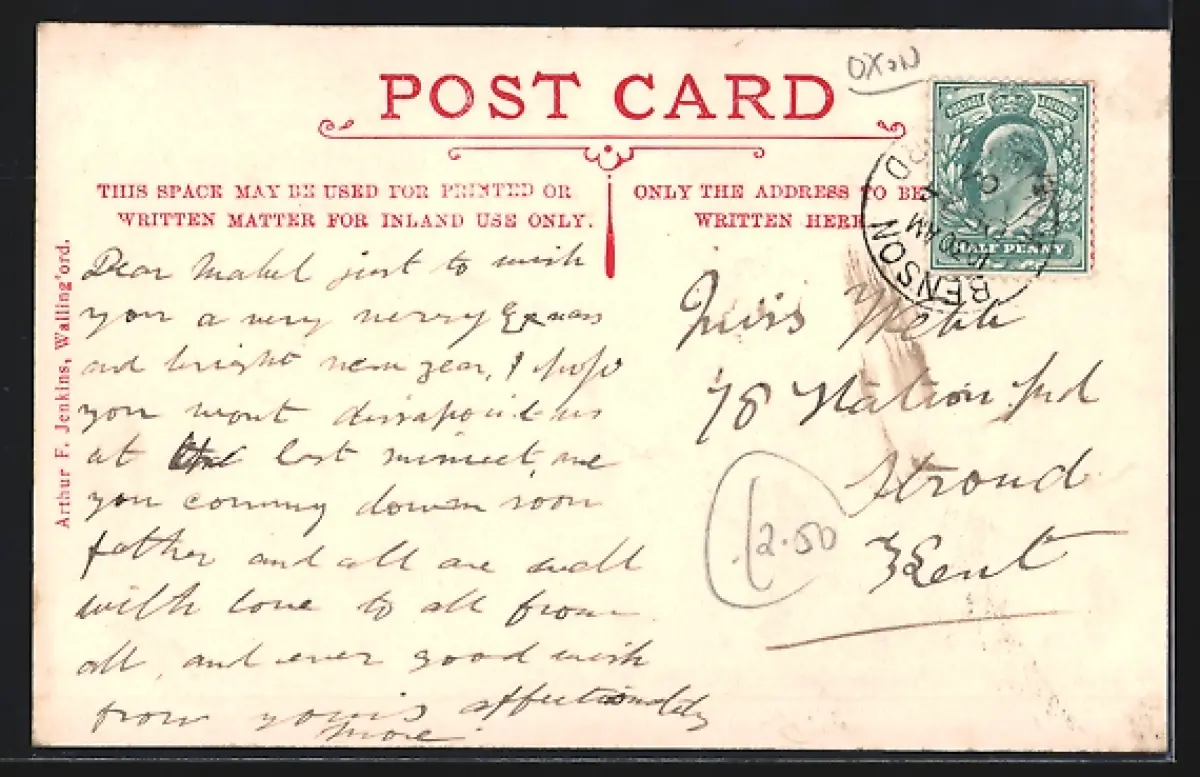 OXON
POST CARD
THIS SPACE MAY BE USED FOR PRINTED OR
WRITTEN MATTER FOR INLAND USE ONLY.
ONLY THE ADDRESS TO BE
WRITTEN HERE
HALF PENNY
BENSON
10 AM
Arthur F. Jenkins, Walling'ord.
Dear Mabel just to wish
you a very merry Exmas
and bright new year, I hope
you wont dissapoint us
at last minuet,
you coming down soon
father and all are well
with love to all from
all, and ever good wish
from yours affectionately
Miss Webb
78 Station Rd
Stroud
Kent
12.50